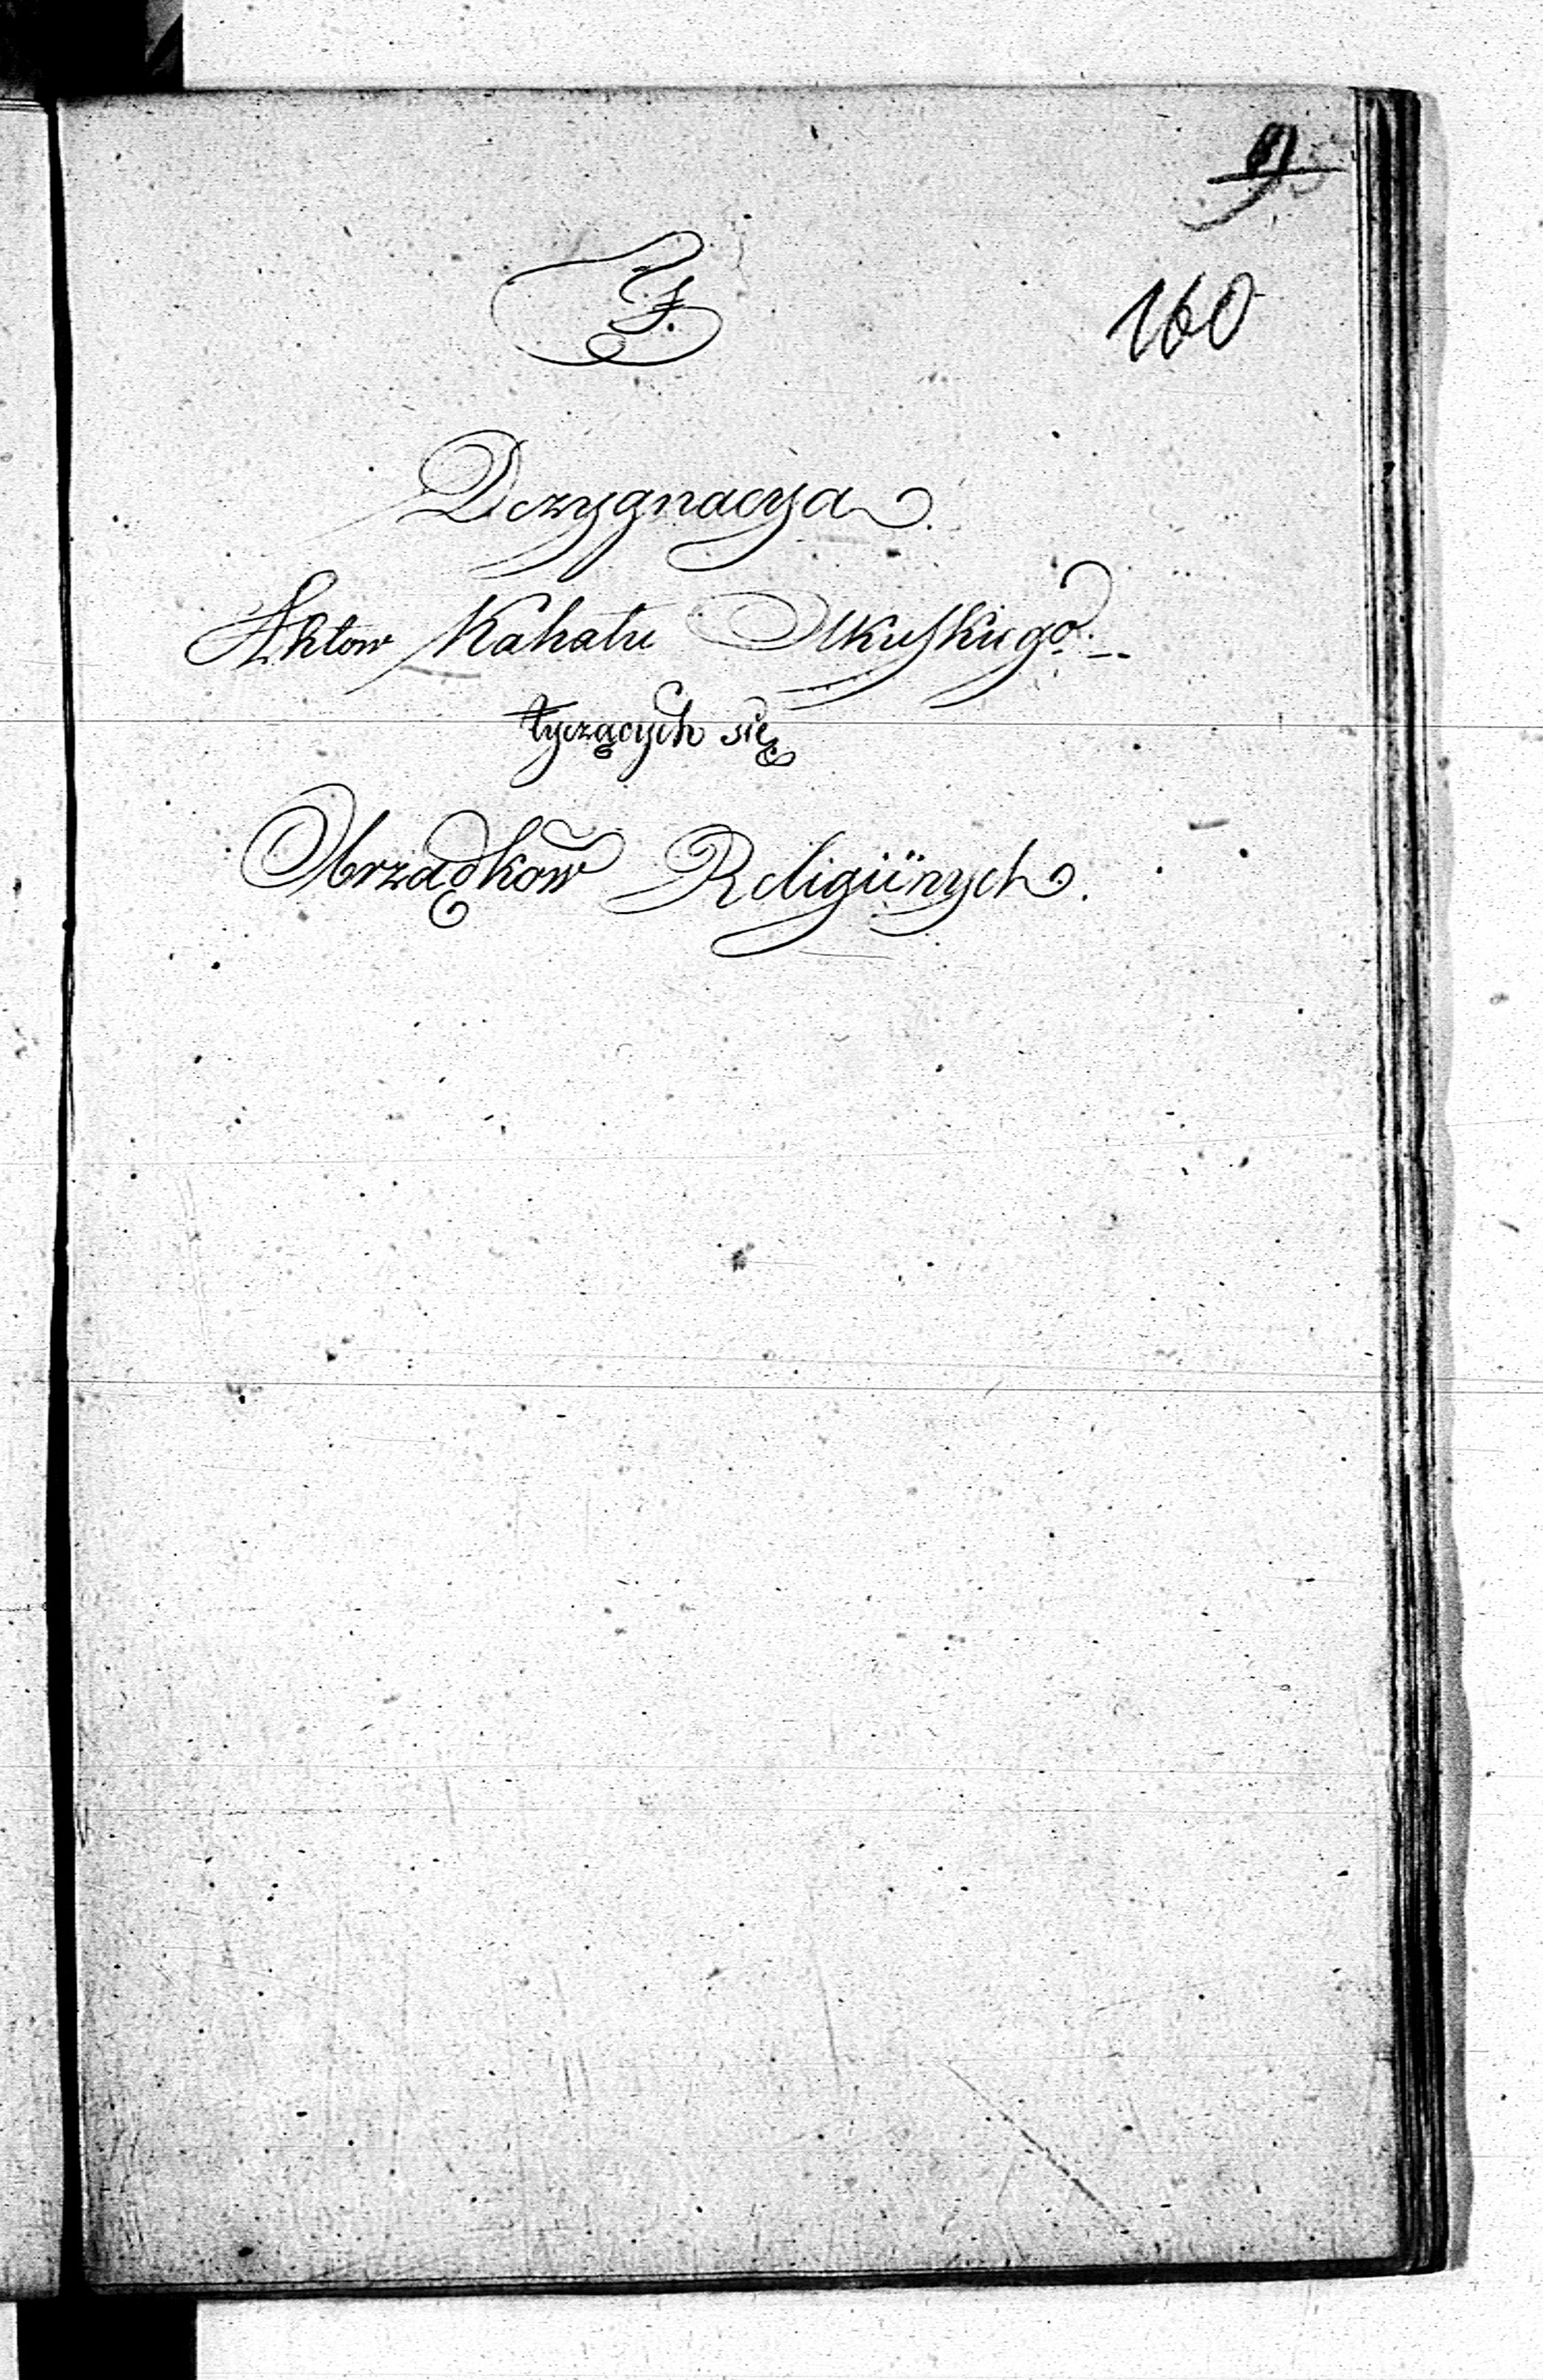 160
F.
Dezygnacya
Aktow Kahału Olkuskiego.
tyczących się
Obrządkow Religiinych.